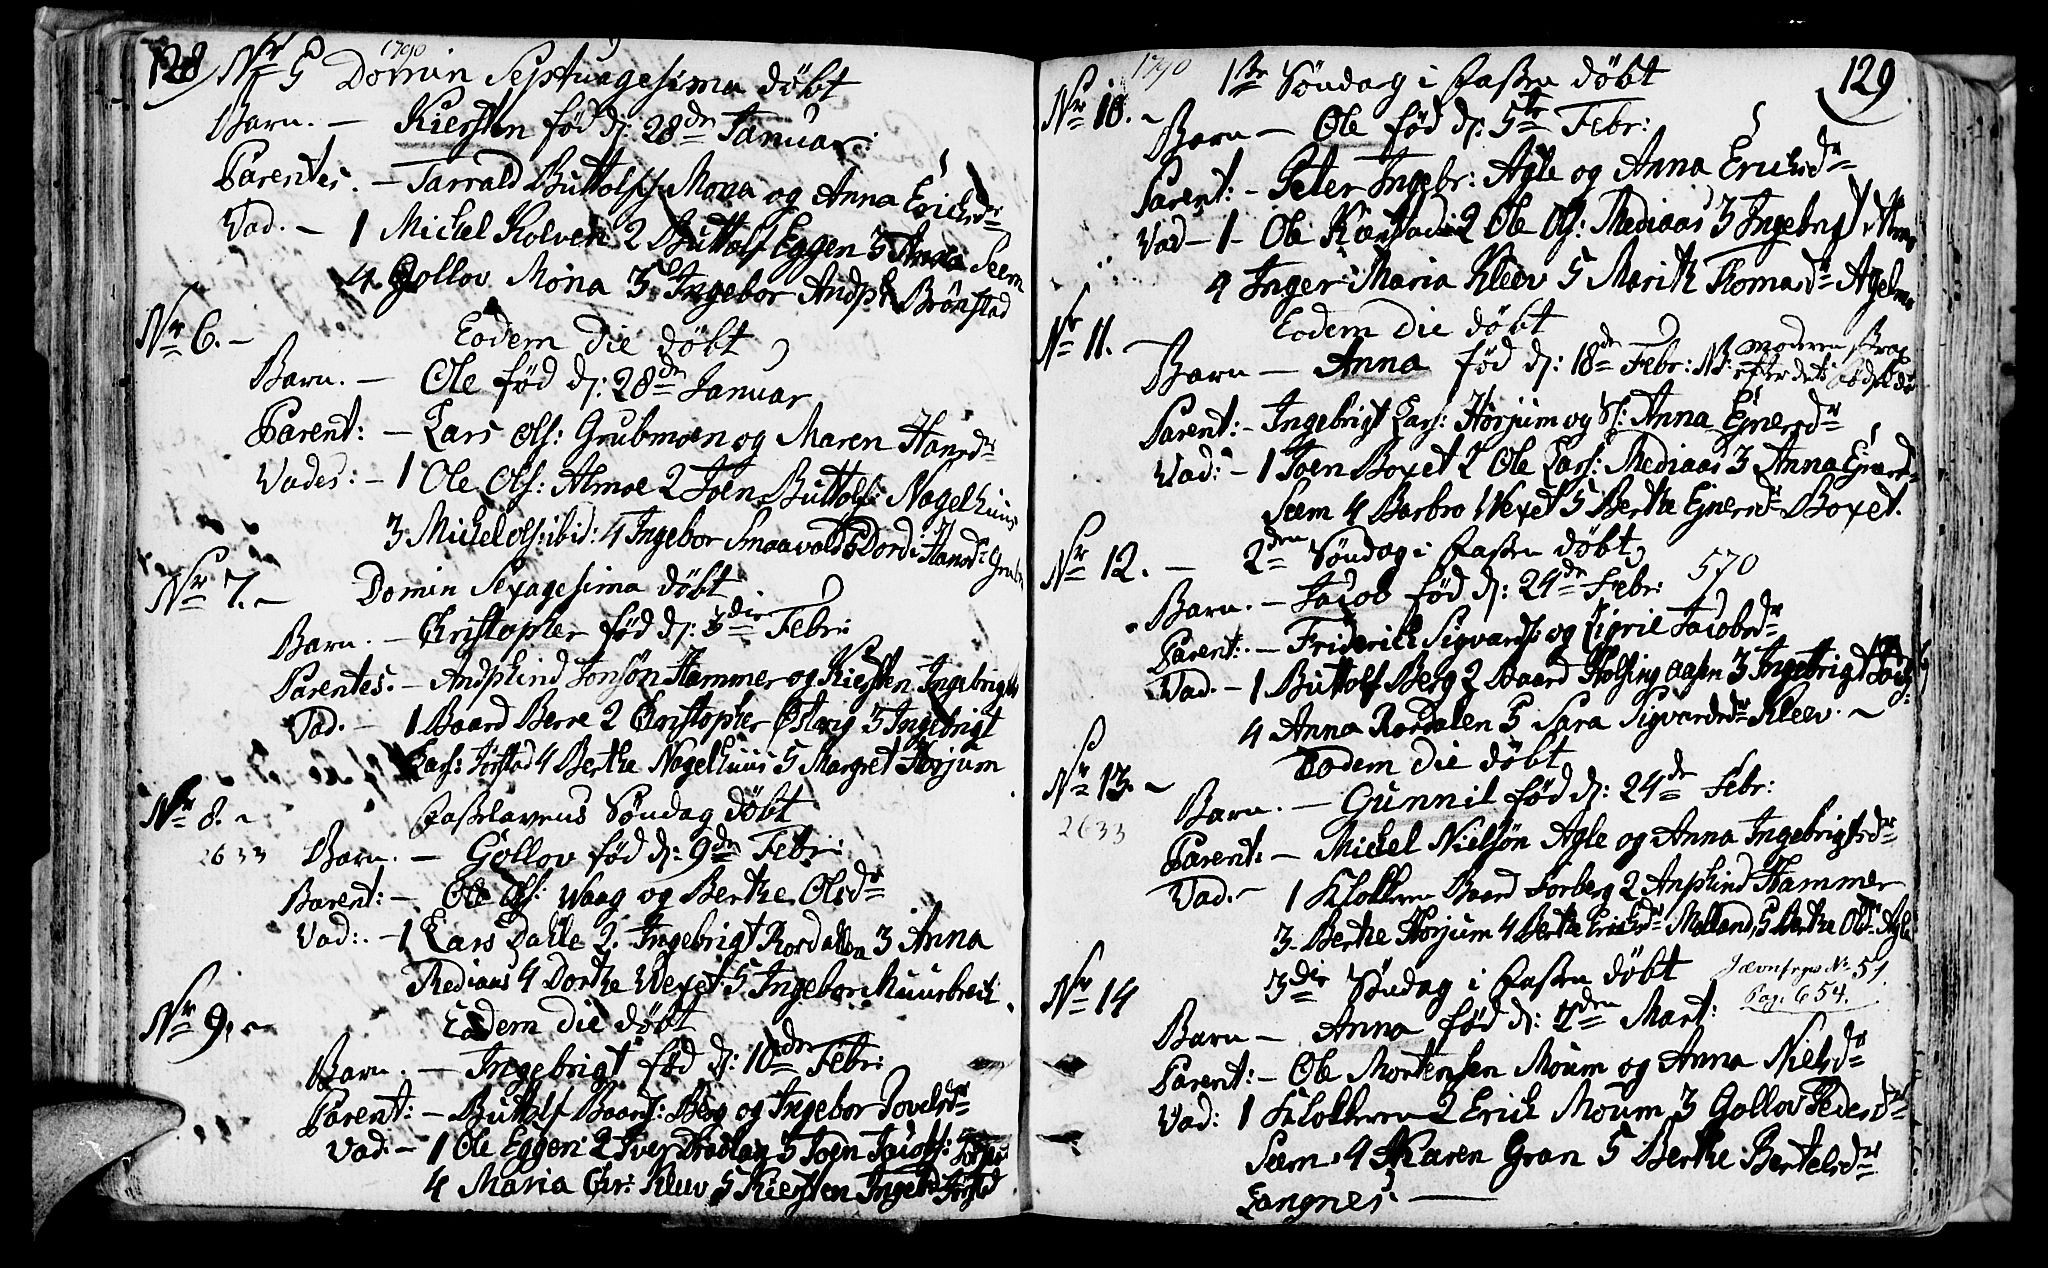 128
1790
Nr 5 Domin Septuagesima döbt
Barn. — Kiersten föd d: 28de Januar:
Parentes. — Tarrald Buttolfs: Mona og Anna Erichsdr
Vad. — 1 Michel Kolven 2 Buttolf Eggen 3 Anna Seem
4 Gollov Mona 5 Ingebor Andph: Brönstad
Nr 6. — Eodem Die döbt
Barn. — Ole föd d: 28de Januar
Parent: — Lars Ols: Grubmoen og Maren Hansdr
Vades: — 1 Ole Ols: Almoe 2 Joen Buttolfs: Nagelhuus
3 Michel Ols: ibid: 4 Ingebor Snaavold 5 Dordi Hansdr Grubm
Nr 7. — Domin Sexagesima döbt
Barn. — Christopher föd d: 3die Febr:
Parentes. — Andphind Jonsøn Hammer og Kiersten Ingebrigts
Vad. — 1 Baard Berre 2 Christopher Östvig 3 Ingebrigt
Lars: Jörstad 4 Berthe Nagelhuus 5 Margret Horjum
Nr 8. — Fastelavens Söndag döbt
2633
Barn. — Gollov föd d: 9de Febr:
Parent: — Ole Ols: Waag og Berthe Olsdr
Vad: — 1 Lars Dalle 2. Ingebrigt Rordallen 3 Anna
Mediaas 4 Dorthe Wexet 5 Ingebor Muusbreck
Nr 9. — Eodem Die döbt
Barn. — Ingebrigt föd d: 10de Febr:
Parent: — Buttolf Baards: Berg og Ingebor Tovelsdr
Vad. — 1 Ole Eggen 2 Iver 3 Joen Jacobs:
4 Maria Chr: Kleev 5 Kiersten Ingebr:
129
1790
Nr 10. — 1ste Söndag i Fasten döbt
Barn — Ole föd d: 5te Febr:
Parent: — Peter Ingebr: Agle og Anna Erichsdr
Vad — 1 Ole Karstad 2 Ole Ols: Mediaas 3 Ingebrigt
4 Inger Maria Kleev 5 Marith Thomasdr Aglen
Nr 11. — Eodem Die döbt
Barn — Anna föd d: 18de Febr: NB: moderen strax
efter dets födsel död
Parent: — Ingebrigt Lars: Horjum og S: Anna Ejnersdr
Vad: — 1 Joen Boxet 2 Ole Lars: Mediaas 3 Anna Ejnersdr
Seem 4 Barbro Wexet 5 Berthe Ejnersdr Boxet.
Nr 12. — 2den Söndag i Fasten döbt
570
Barn. — Jacob föd d: 24de Febr:
Parent: — Friderich Sigvards: og Sigrie Jacobsdr
Vad. — 1 Buttolf Berg 2 Baard Holsingaasen 3 Ingebrigt
4 Anna Rordalen 5 Sara Sigvardsdr Kleev. —
Eodem Die döbt
Nr 13. —
2633
Barn. — Gunnil föd d: 24de Febr:
Parent: — Michel Nielsøn Agle og Anna Ingebrigtsdr
Vad. — 1 Klokkeren Baard Sorberg 2 Anphind Hammer
3. Berthe Horjum 4 Berthe Erichsdr Molland, 5 Berthe Olsdr Agle
Nr 14 3die Söndag i Fasten döbt
Jævnfør No 51.
Pag. 654.
Barn — Anna föd d: 2den Mart:
Parent: — Ole Mortensen Moum og Anna Nielsdr
Vad: 1 Klokkeren 2 Erich Moum 3 Gollov Pedersdr
Seem 4 Karen Gran 5 Berthe Bertelsdr
Langnes. —